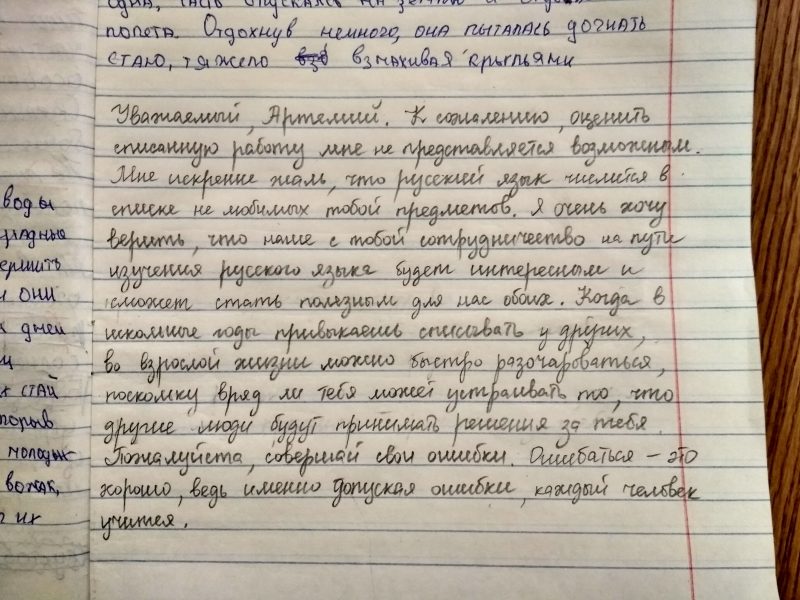 одна, часто опускалась на землю и
полёта. Отдохнув немного, она пыталась догнать
стаю, тяжело взмахивая крыльями
Уважаемый, Артемий. К сожалению, оценить
списанную работу мне не представляется возможным.
Мне искренне жаль, что русский язык числится в
списке не любимых тобой предметов. Я очень хочу
верить, что наше с тобой сотрудничество на пути
изучения русского языка будет интересным и
сможет стать полезным для нас обоих. Когда в
школьные годы привыкаешь списывать у других,
во взрослой жизни можно быстро разочароваться,
поскольку вряд ли тебя может устраивать то, что
другие люди будут принимать решения за тебя.
Пожалуйста, совершай свои ошибки. Ошибаться – это
хорошо, ведь именно допуская ошибки, каждый человек
учится.
воды
ершить
и они
х дней
стай
порыв
молодых
вожак,
их